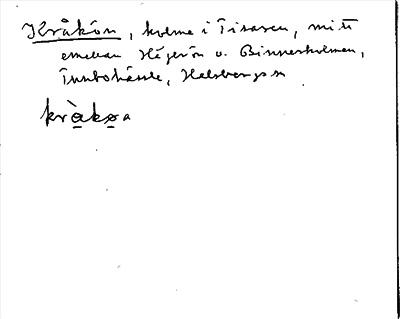 Kråkön, holme i Tisaren, mitt
emellan Högerön o. Binnerholmen,
Hallsbergs sn
kràkøa